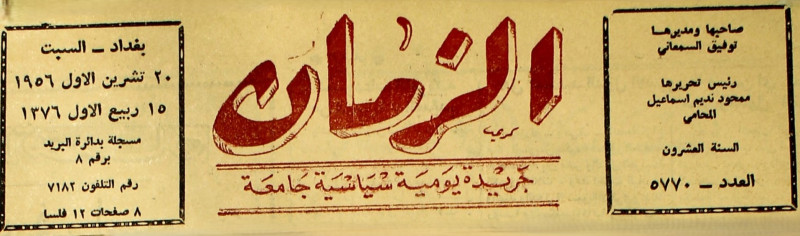 صاحبها ومديرها
توفيق السمعاني
رئيس تحريرها
محمود نديم اسماعيل
المحامي
السنة العشرون
العدد – ٥٧٧٠
الزمان
كريم
جريدة يومية سياسية جامعة
بغداد – السبت
٢٠ تشرين الاول ١٩٥٦
١٥ ربيع الاول ١٣٧٦
مسجلة بدائرة البريد
برقم ٨
رقم التلفون ٧١٨٢
٨ صفحات ١٢ فلسا